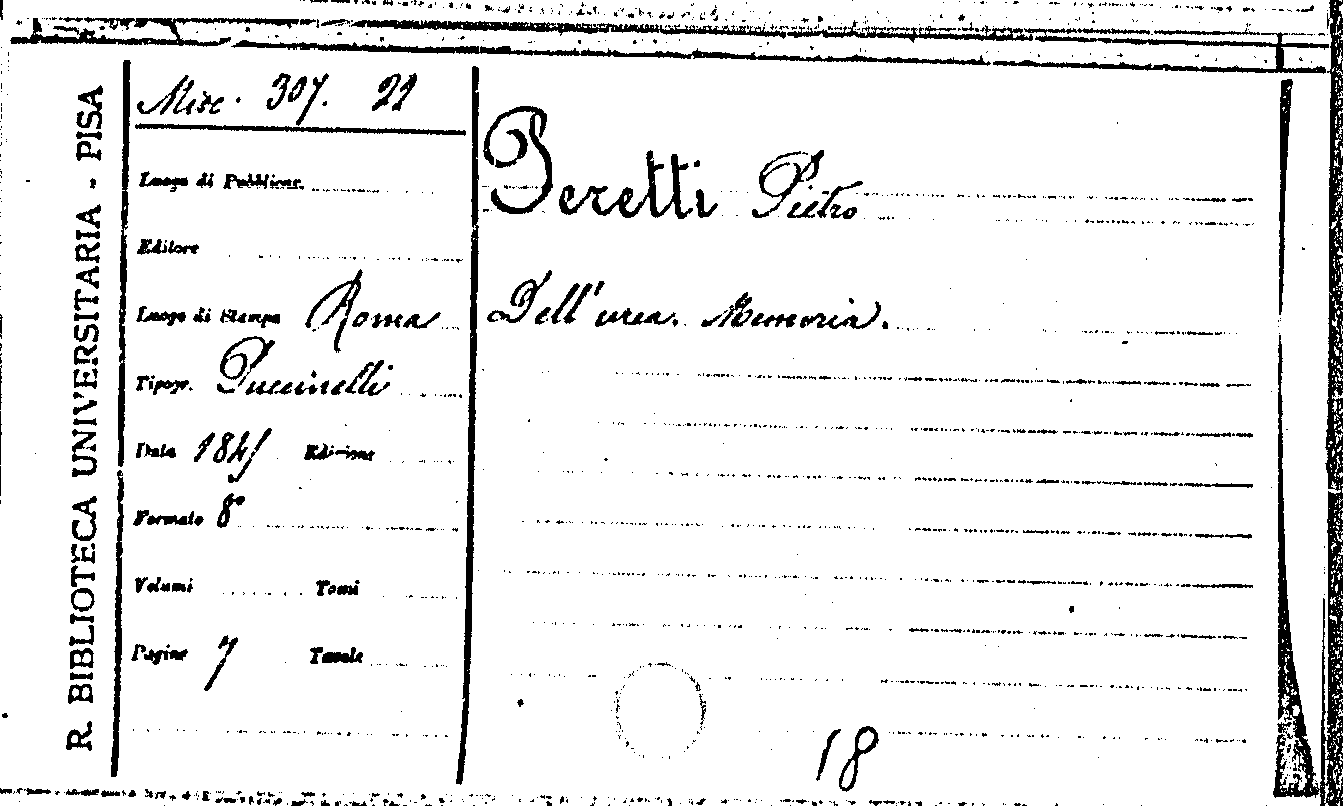 R. BIBLIOTECA UNIVERSITARIA - PISA
Misc. 307. 22
Luogo di Pubblicaz.
Editore
Luogo di Stampa Roma
Tipogr. Puccinelli
Data 184
Edizione
Formato 8º
Volumi Tomi
Pagine 7 Tavole
Peretti Pietro
Dell'urea. Memoria.
18